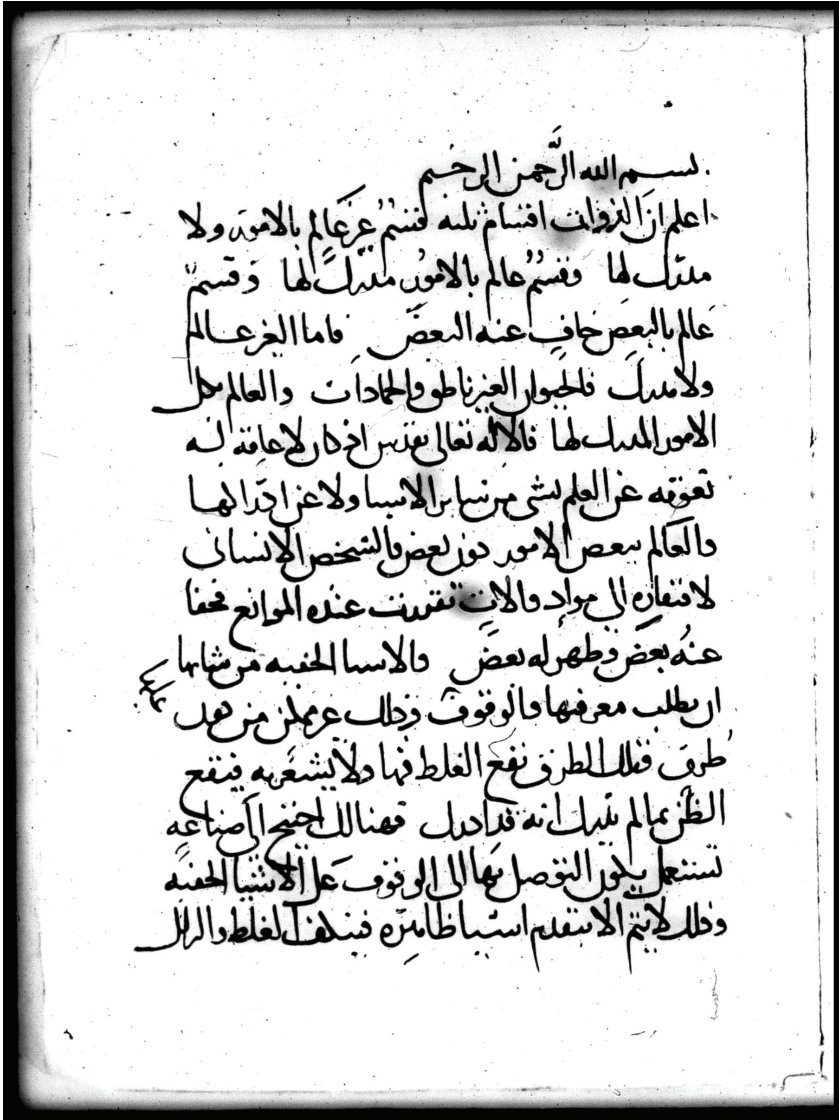 بسم الله الرحمن الرحيم
اعلم ان الذوات اقسام ثلثه قسمٌ غير عالم بالامور ولا
مدرك لها وقسمٌ عالم بالامور مدرك لها وقسمٌ
عالم بالبعض خافٍ عنه البعض فاما الغير عالم
ولا مدرك فالحيوان الغير ناطق والجمادات والعالم بكل
الامور المدرك لها فالاله تعالى وتقدس اذ كان لا عاقه له
تعوقه عن العلم بشى من ساير الاشيا ولا عن ادراكها
والعالم ببعض الامور دون بعض فالشخص الانسانى
لافتقاره الى مواد والات تقررت عنده الموانع فخفا
عنه بعض وظهر له بعض والاشيا الخفيه من شانها
ان يطلب معرفتها والوقوف وذلك غير ممكن من
طرق فتلك الطرق يقع الغلط فيها ولا يشعر به فيقع
الظن بما لم يدرك انه قد ادرك فهنالك احتيج الى صناعه
تستعمل يكون التوصل بها الى الوقوف على الاشيا الخفيه
وذلك لا يتم الا بتقدم اشيا ظاهره فينكف الغلط والزلل